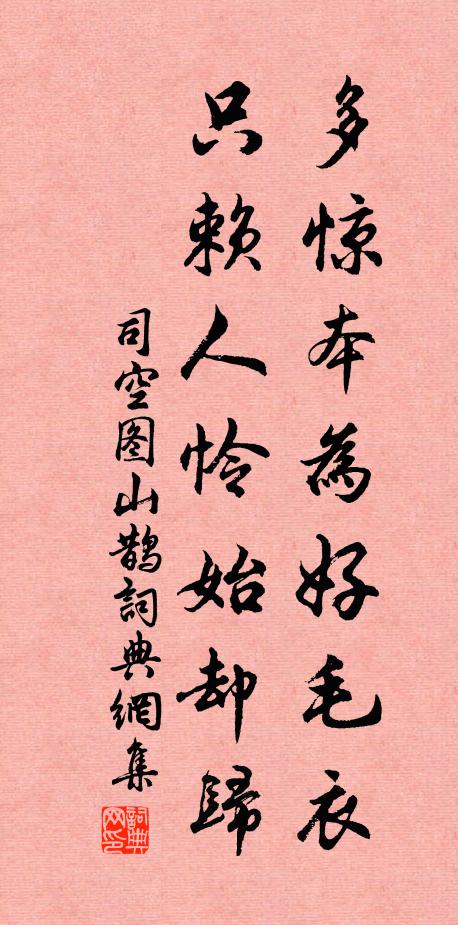 多惊本為好毛衣
只赖人怜始却歸
司空图山鹊詞典網集
詞典网印